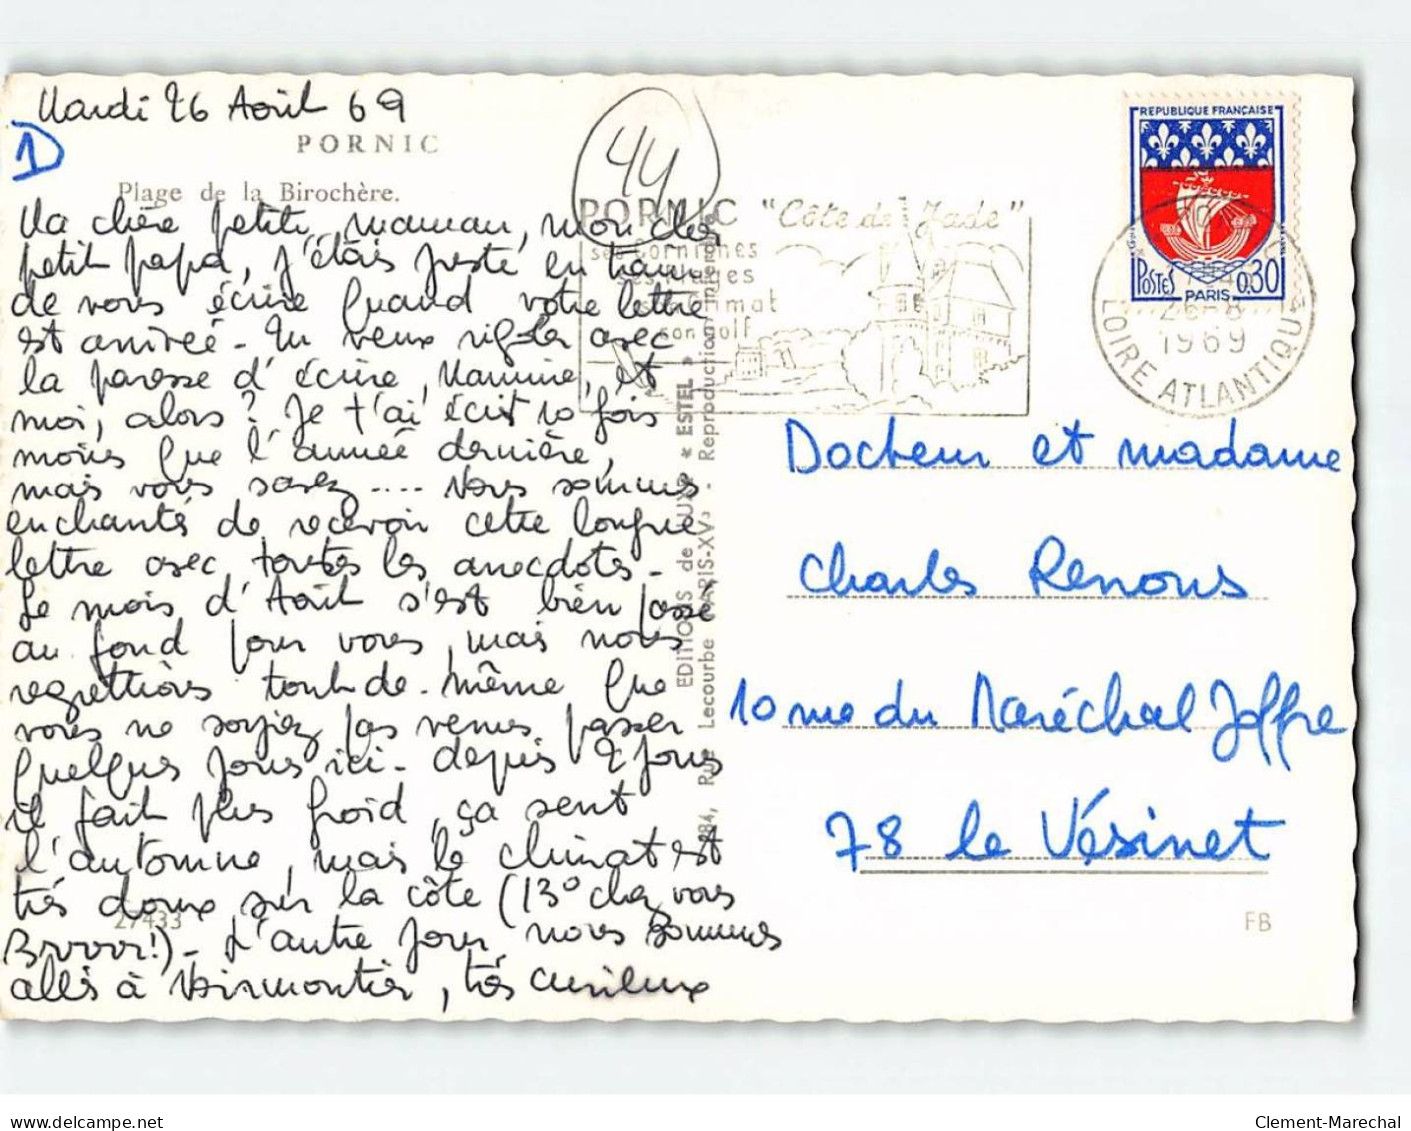 Mardi 26 Août 69
1
PORNIC
Plage de la Birochère.
Ma chère petite maman, mon cher
petit papa, j'étais juste en train
de vous écrire quand votre lettre
est arrivée. Tu veux rigoler avec
la paresse d'écrire, Mamine, et
moi, alors ? Je t'ai écrit 10 fois
moins que l'année dernière,
mais vous savez.... Nous sommes
enchantés de recevoir cette longue
lettre avec toutes les anecdotes.
Le mois d'Août s'est bien passé
au fond pour vous, mais nous
regrettions tout de même que
vous ne soyiez pas venus passer
quelques jours ici. depuis 2 jours
il fait plus froid, ça sent
l'automne, mais le climat est
très doux sur la côte (13° chez vous
Brrrr!). L'autre jour nous sommes
allés à Noirmontier, très curieux
27433
44
PORNIC "Côte de Jade"
ses Corniches
ses Plages
son Climat
son Golf
EDITIONS de LUXE « ESTEL »
284, Rue Lecourbe PARIS-XV - Reproduction interdite
REPUBLIQUE FRANÇAISE
POSTES 0,30
PARIS
26-8
1969
LOIRE ATLANTIQUE
Docteur et madame
Charles Renous
10 rue du Maréchal Joffre
78 le Vésinet
FB
delcampe.net
Clement-Marechal